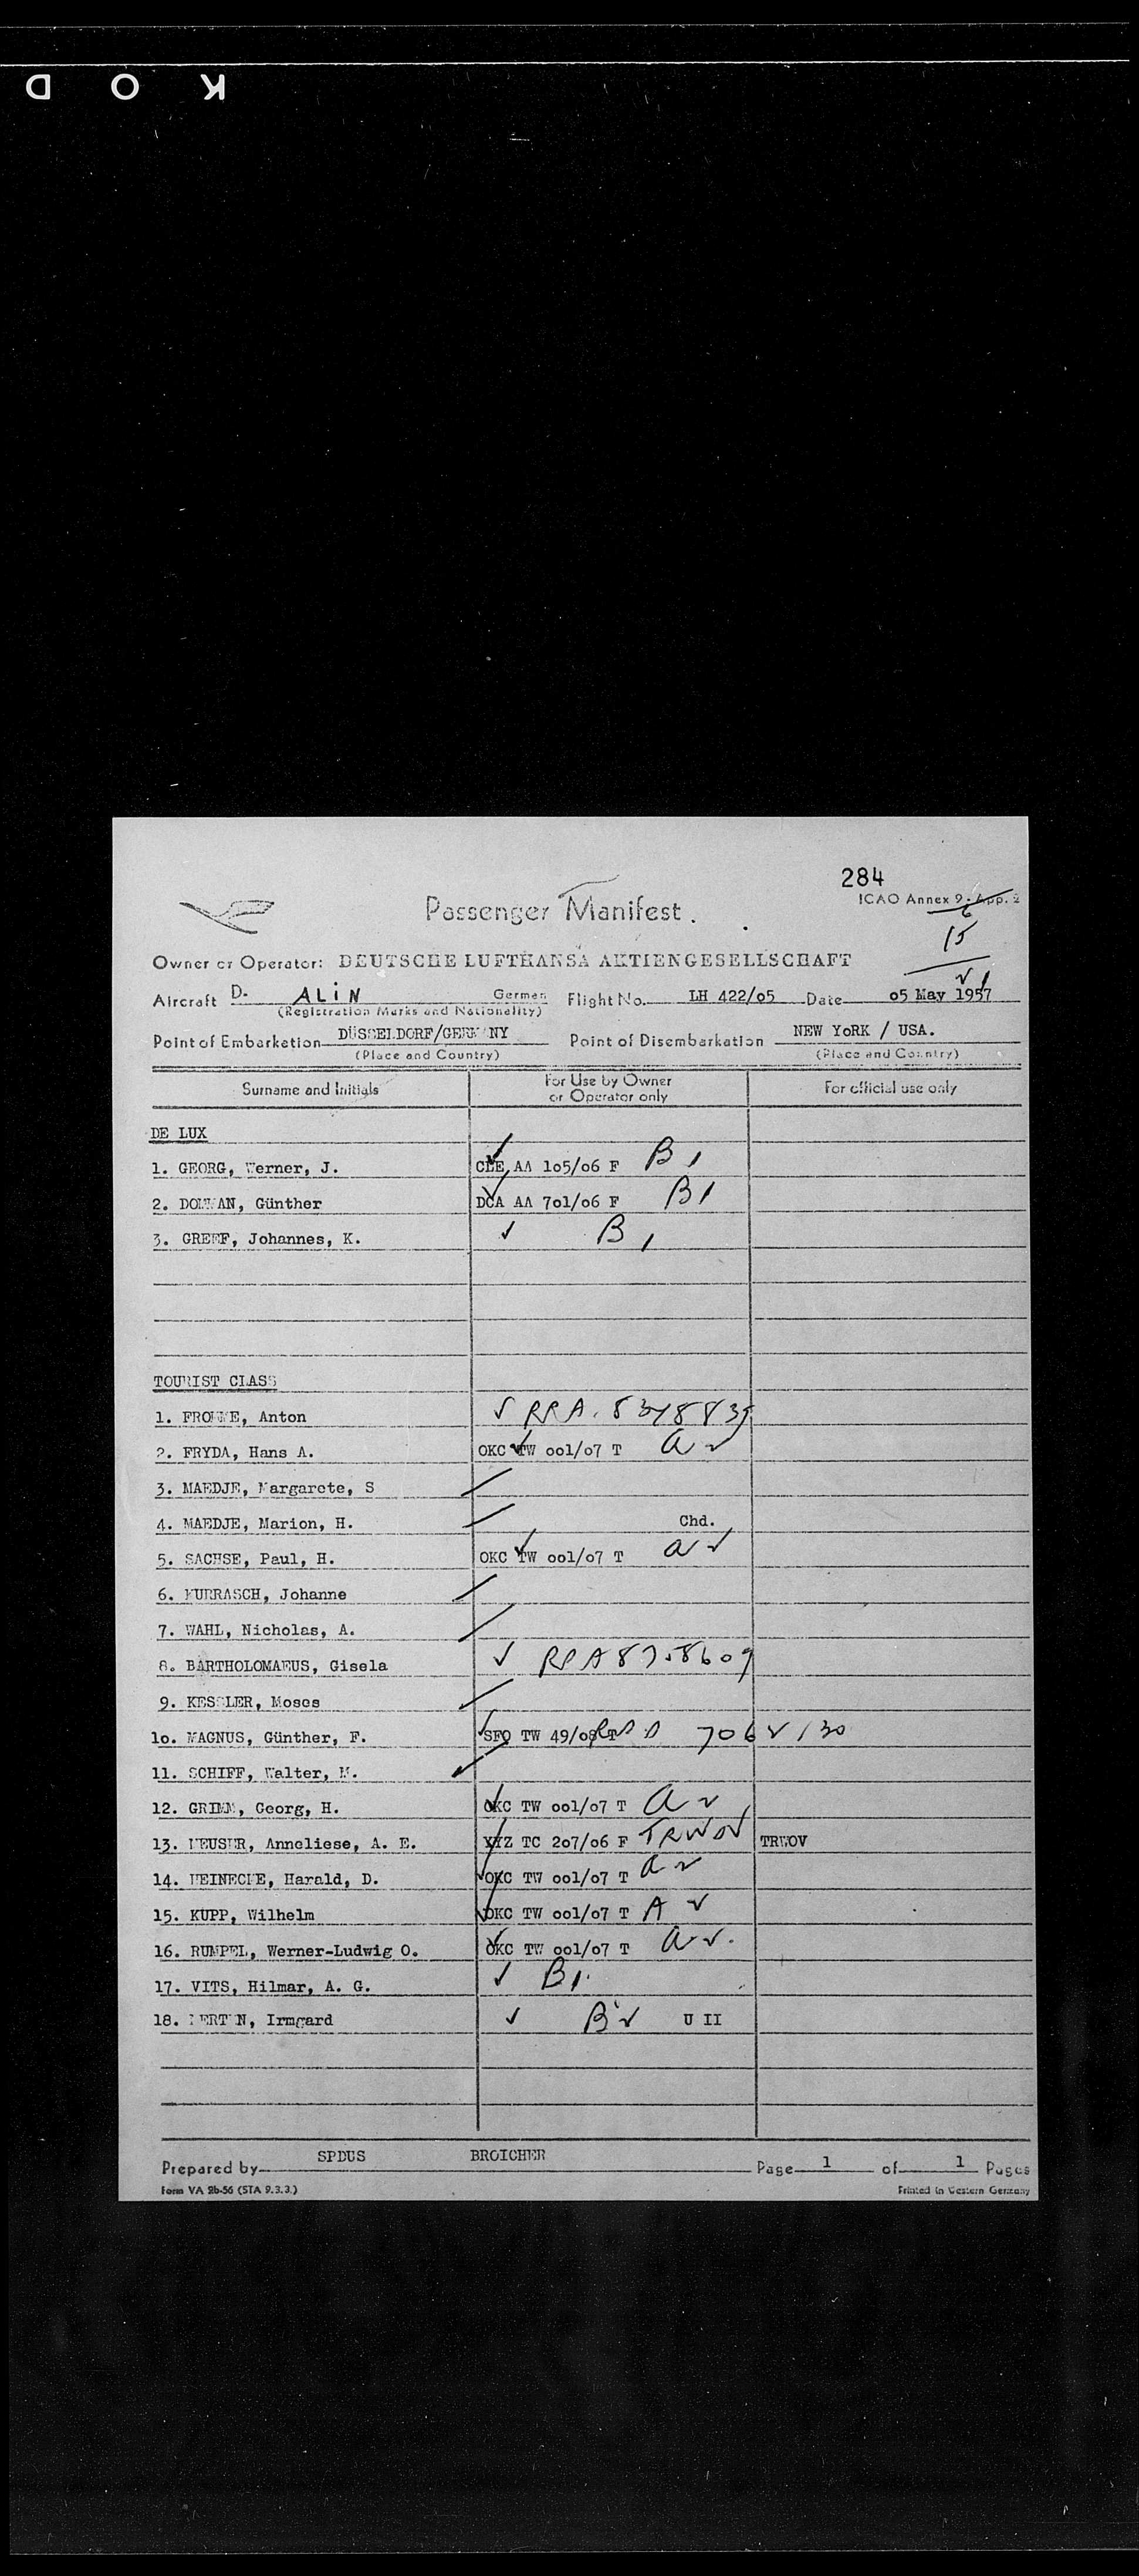 KOD
284
Passenger Manifest.
ICAO Annex 9 - App. 2
6
15
Owner or Operator: DEUTSCHE LUFTHANSA AKTIENGESELLSCHAFT
Aircraft D- ALiN German Flight No. LH 422/o5 Date o5 May 1957
(Registration Marks and Nationality)
Point of Embarkation DÜSSELDORF/GERMANY Point of Disembarkation NEW YoRK / USA.
(Place and Country) (Place and Country)
Surname and Initials For Use by Owner or Operator only For official use only
DE LUX
1. GEORG, Werner, J. CLE AA 1o5/o6 F B 1
2. Günther DCA AA 7o1/o6 F B 1
3. GREEF, Johannes, K. ✓ B 1
TOURIST CLASS
1. Anton ✓ RPA
2. FRYDA, Hans A. OKC TW oo1/o7 T a ✓
3. MAEDJE, Margarete, S
4. MAEDJE, Marion, H. Chd.
5. SACHSE, Paul, H. OKC TW oo1/o7 T a ✓
6. Johanne
7. WAHL, Nicholas, A.
8. BARTHOLOMAEUS, Gisela ✓ RPA
9. KESSLER, Moses
1o. MAGNUS, Günther, F. SFO TW 49/o8 T
11. SCHIFF, Walter, M.
12. GRIMM, Georg, H. OKC TW oo1/o7 T a ✓
13. Anneliese, A. E. XYZ TC 2o7/o6 F TRWOV TRWOV
14. Harald, D. OKC TW oo1/o7 T a ✓
15. KUPP, Wilhelm OKC TW oo1/o7 T A ✓
16. RUMPEL, Werner-Ludwig O. OKC TW oo1/o7 T a ✓.
17. VITS, Hilmar, A. G. ✓ B 1
18. Irmgard ✓ B ✓ U II
Prepared by SPDUS BROICHER Page 1 of 1 Pages
Form VA 2b-56 (STA 9.3.3.) Printed in Western Germany